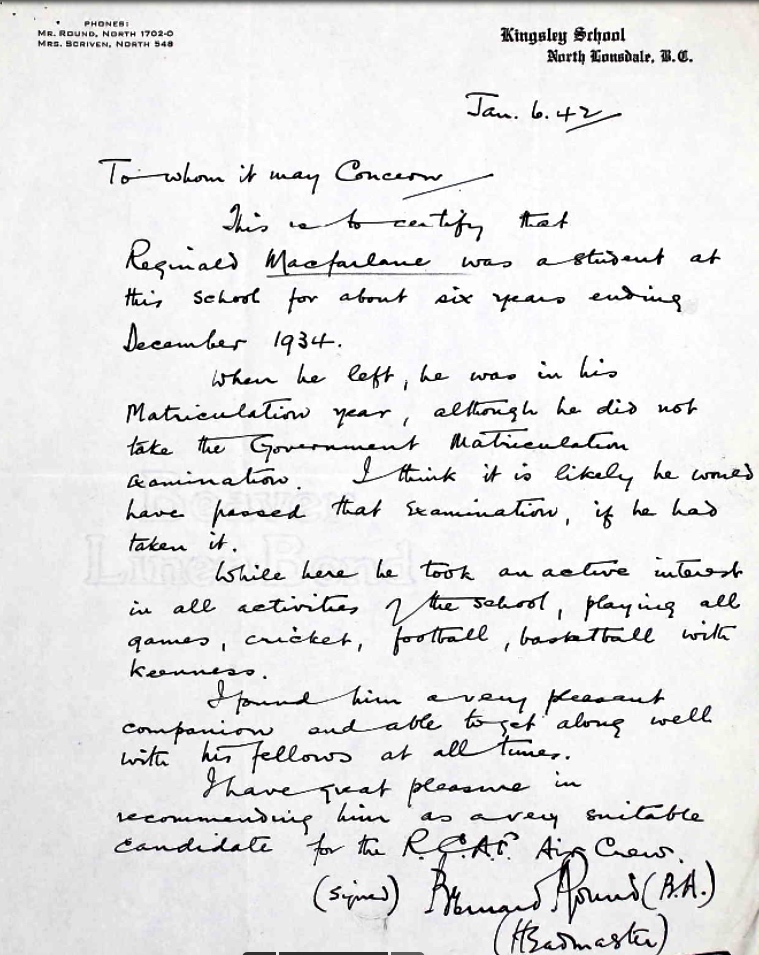 PHONES:
MR. ROUND, NORTH 1702-O
MRS. SCRIVEN, NORTH 548
Kingsley School
North Lonsdale, B.C.
Jan. 6. 42
To whom it may Concern
This is to certify that
Reginald Macfarlane was a student at
this school for about six years ending
December 1934.
When he left, he was in his
Matriculation year, although he did not
take the Government Matriculation
Examination. I think it is likely he would
have passed that Examination, if he had
taken it.
While here he took an active interest
in all activities of the school, playing all
games, cricket, football, basketball with
keenness.
I found him a very pleasant
companion and able to get along well
with his fellows at all times.
I have great pleasure in
recommending him as a very suitable
candidate for the R.C.A.F. Air Crew.
(Signed) Bernard Round (B.A.)
(Headmaster)
Linen Bond